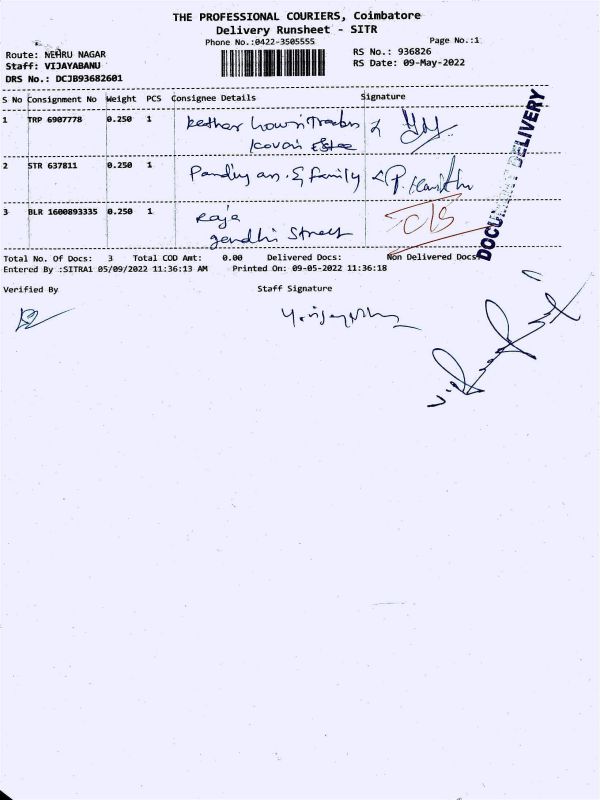 THE PROFESSIONAL COURIERS, Coimbatore
Delivery Runsheet - SITR
Phone No.:0422-3505555
Page No.:1
Route: NEHRU NAGAR
RS No.: 936826
Staff: VIJAYABANU
RS Date: 09-May-2022
DRS No.: DCJB93682601
S No Consignment No Weight PCS Consignee Details Signature
1 TRP 6907778 0.250 1
2 STR 637811 0.250 1 Pandiyan & family
3 BLR 1600893335 0.250 1 Raja
gandhi Street
DOCUMENT DELIVERY
Total No. Of Docs: 3 Total COD Amt: 0.00 Delivered Docs: Non Delivered Docs:
Entered By :SITRA1 05/09/2022 11:36:13 AM Printed On: 09-05-2022 11:36:18
Verified By Staff Signature